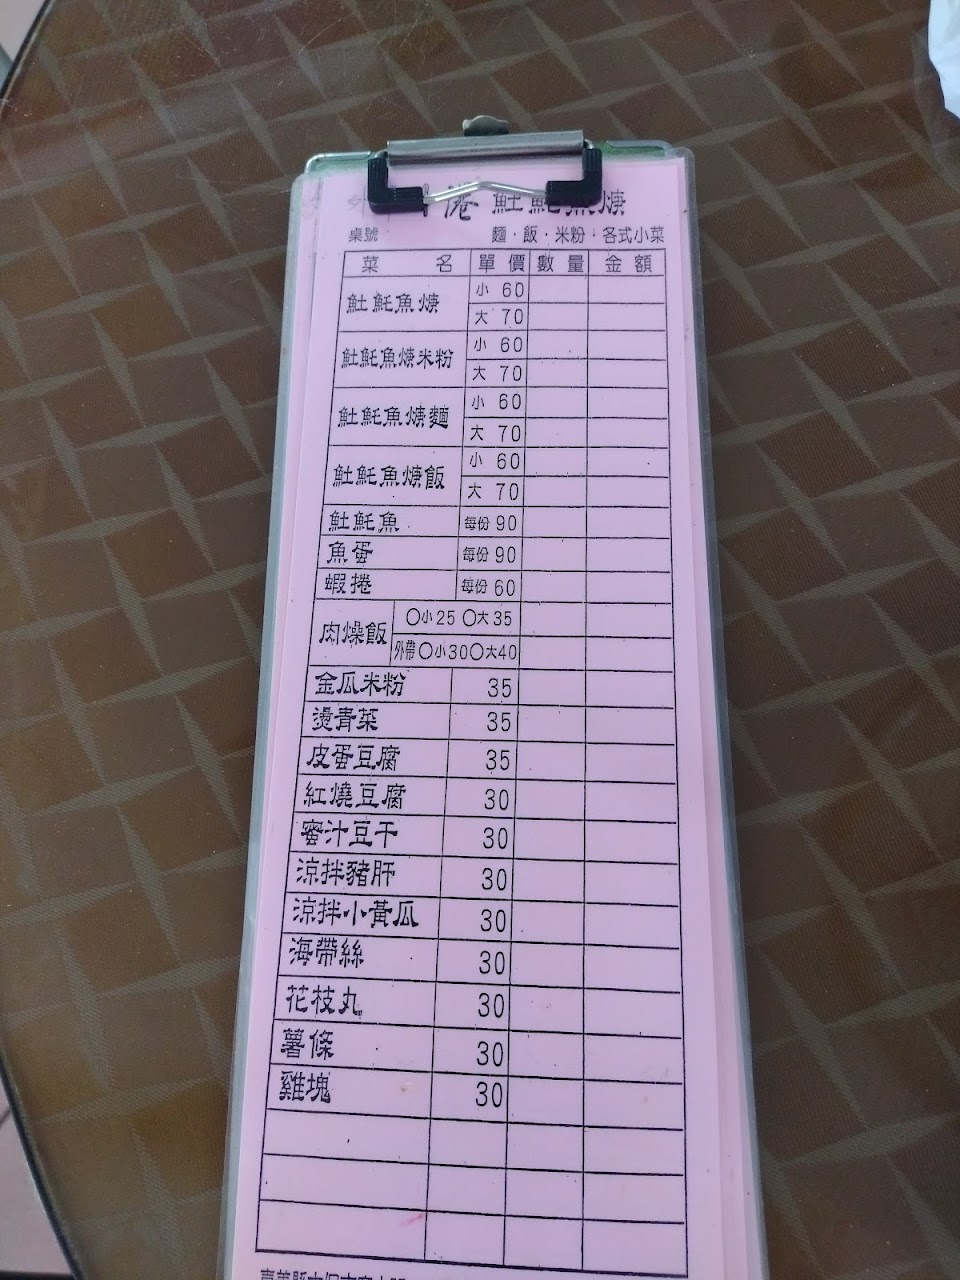 港 𩵚魠魚焿
桌號 麵·飯·米粉·各式小菜
菜 名 單 價 數 量 金 額
𩵚魠魚焿 小 60
大 70
𩵚魠魚焿米粉 小 60
大 70
𩵚魠魚焿麵 小 60
大 70
𩵚魠魚焿飯 小 60
大 70
𩵚魠魚 每份 90
魚蛋 每份 90
蝦捲 每份 60
肉燥飯 〇小25 〇大35
外帶〇小30〇大40
金瓜米粉 35
燙青菜 35
皮蛋豆腐 35
紅燒豆腐 30
蜜汁豆干 30
涼拌豬肝 30
涼拌小黃瓜 30
海帶絲 30
花枝丸 30
薯條 30
雞塊 30